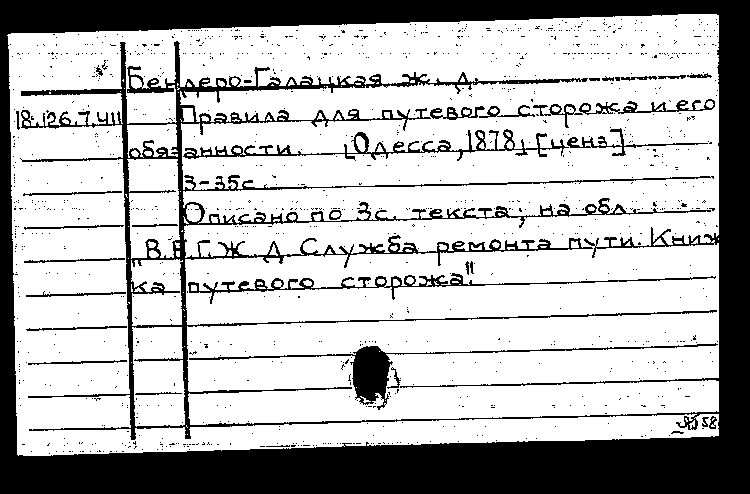 Бендеро-Галацкая ж. д.
18.126.7.411 Правила для путевого сторожа и его
обязанности. [Одесса, 1878] [ценз.].
3-35с.
Описано по 3с. текста; на обл. :
„В.Б.Г.Ж.Д. Служба ремонта пути. Книж
ка путевого сторожа."
58